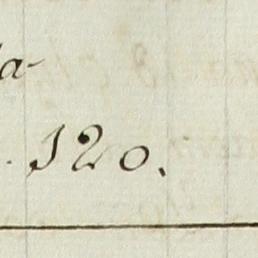 la-
. 120.